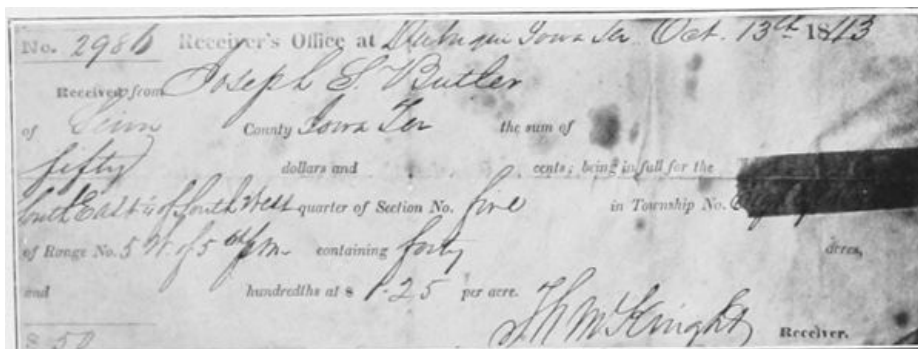 No. 2986 Receiver's Office at Dubuque Iowa Ter Oct. 13th 1843
Received from Joseph S. Butler
of Linn County Iowa Ter the sum of
fifty dollars and cents; being in full for the
South East ¼ of South West quarter of Section No. five in Township No.
of Range No. 5 W. of 5th p m containing forty acres,
and hundredths at $ 1.25 per acre.
$ 50 McKnight Receiver.